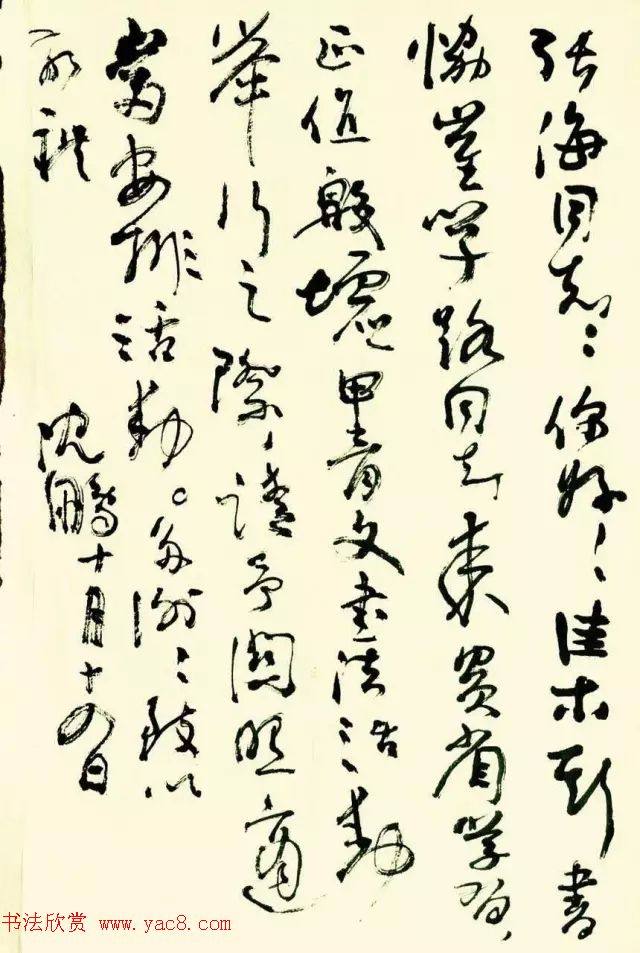 张海同志：你好！佳木斯书
恊崔学路同志来贵省学习，
正值殷墟甲骨文书法活動
举行之际，请予関照，適
當安排活動。多谢！致以
敬礼
沈鹏十月十四日
书法欣赏 www.yac8.com